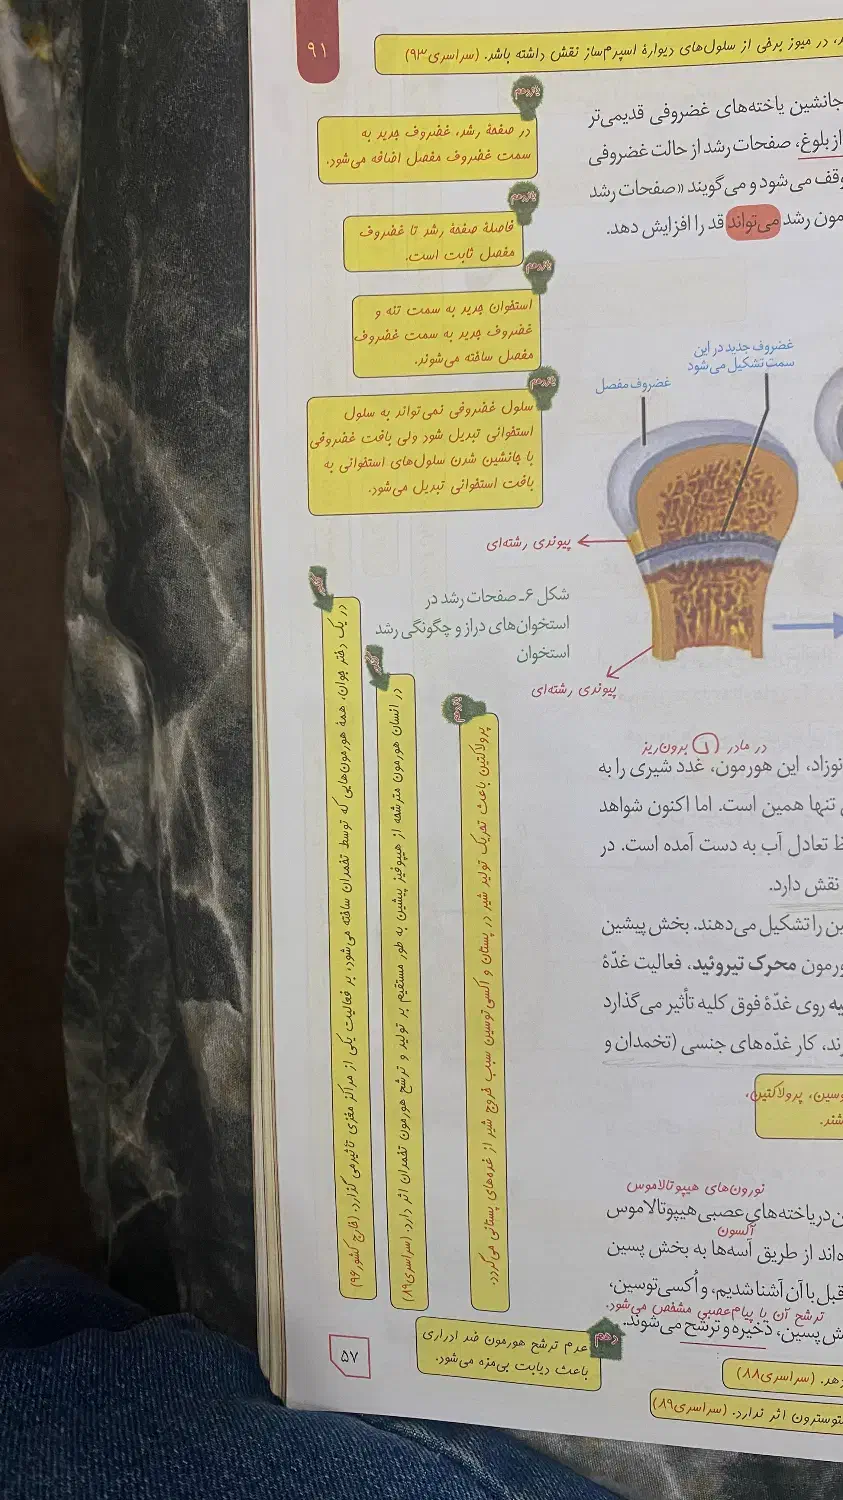 ۹۱
د، در میوز برخی از سلول‌های دیوارهٔ اسپرم‌ساز نقش داشته باشد. (سراسری ۹۳)
جانشین یاخته‌های غضروفی قدیمی‌تر
از بلوغ، صفحات رشد از حالت غضروفی
وقف می‌شود و می‌گویند «صفحات رشد
مون رشد می‌تواند قد را افزایش دهد.
یازدهم
در صفحهٔ رشد، غضروف جدید به
سمت غضروف مفصل اضافه می‌شود.
یازدهم
فاصلهٔ صفحهٔ رشد تا غضروف
مفصل ثابت است.
یازدهم
استخوان جدید به سمت تنه و
غضروف جدید به سمت غضروف
مفصل ساخته می‌شوند.
یازدهم
سلول غضروفی نمی‌تواند به سلول
استخوانی تبدیل شود ولی بافت غضروفی
با جانشین شدن سلول‌های استخوانی به
بافت استخوانی تبدیل می‌شود.
غضروف جدید در این
سمت تشکیل می‌شود
غضروف مفصل
پیوندی رشته‌ای
پیوندی رشته‌ای
شکل ۶ـ صفحات رشد در
استخوان‌های دراز و چگونگی رشد
استخوان
در مادر ۱ برون‌ریز
نوزاد، این هورمون، غدد شیری را به
تنها همین است. اما اکنون شواهد
ظ تعادل آب به دست آمده است. در
نقش دارد.
ین را تشکیل می‌دهند. بخش پیشین
ورمون محرک تیروئید، فعالیت غدّهٔ
یه روی غدّهٔ فوق کلیه تأثیر می‌گذارد
رند، کار غدّه‌های جنسی (تخمدان و
وسین، پرولاکتین،
شند.
نورون‌های هیپوتالاموس
ن در یاخته‌های عصبی هیپوتالاموس
آکسون
ه‌اند از طریق آسه‌ها به بخش پسین
قبل با آن آشنا شدیم، و اُکسی‌توسین،
ترشح آن با پیام عصبی مشخص می‌شود.
ش پسین، ذخیره و ترشح می‌شوند.
دهد. (سراسری ۸۸)
ستوسترون اثر ندارد. (سراسری ۸۹)
یازدهم
پرولاکتین باعث تحریک تولید شیر در پستان و اکسی‌توسین سبب خروج شیر از غده‌های پستانی می‌گردد.
کنکور
در انسان هورمون مترشحه از هیپوفیز پیشین به طور مستقیم بر تولید و ترشح هورمون تخمدان اثر دارد. (سراسری ۸۹)
کنکور
در یک دختر جوان، همهٔ هورمون‌هایی که توسط تخمدان ساخته می‌شود، بر فعالیت یکی از مراکز مغزی تأثیر می گذارد. (خارج کشور ۹۶)
دهم
عدم ترشح هورمون ضد ادراری
باعث دیابت بی‌مزه می‌شود.
۵۷